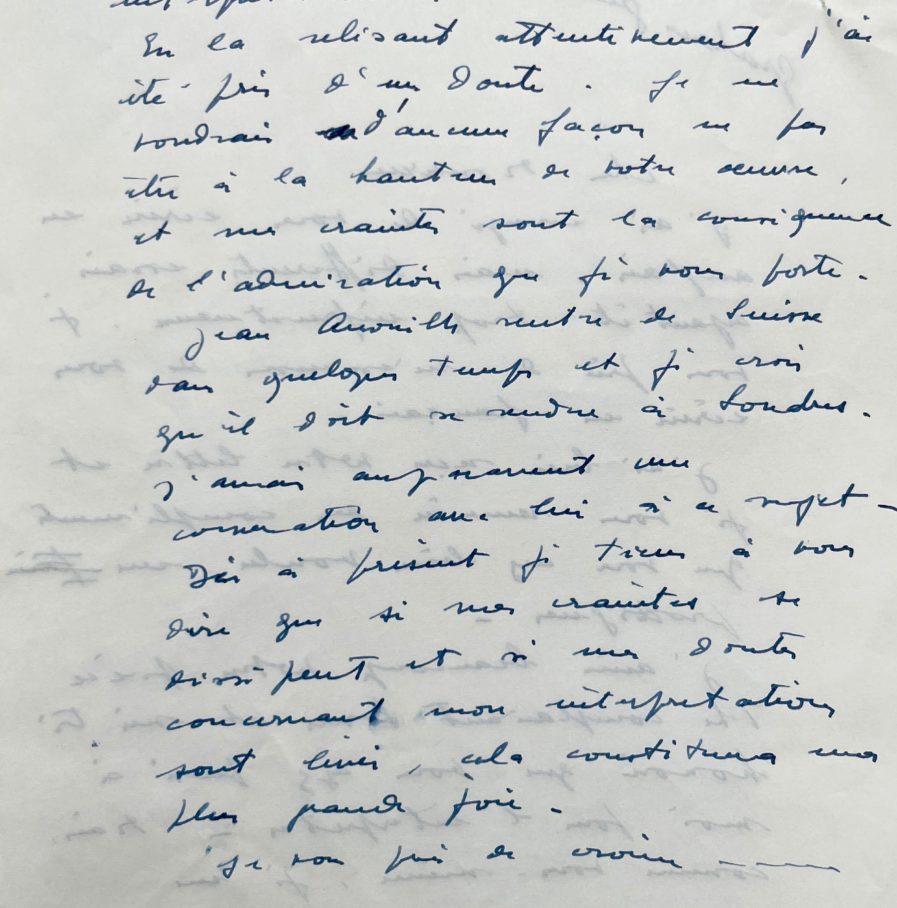 En la relisant attentivement j'ai
été pris d'un doute. Je ne
voudrais d'aucune façon ne pas
être à la hauteur de votre oeuvre,
et mes craintes sont la conséquence
de l'admiration que je vous porte.
Jean Anouilh rentre de Suisse
dans quelques temps et je crois
qu'il doit se rendre à Londres.
J'aurai auparavant une
conversation avec lui à ce sujet -
Dès à présent je tiens à vous
dire que si mes craintes se
dissipent et si mes doutes
concernant mon interprétation
sont levés, cela constituera ma
plus grande joie -
Je vous prie de croire